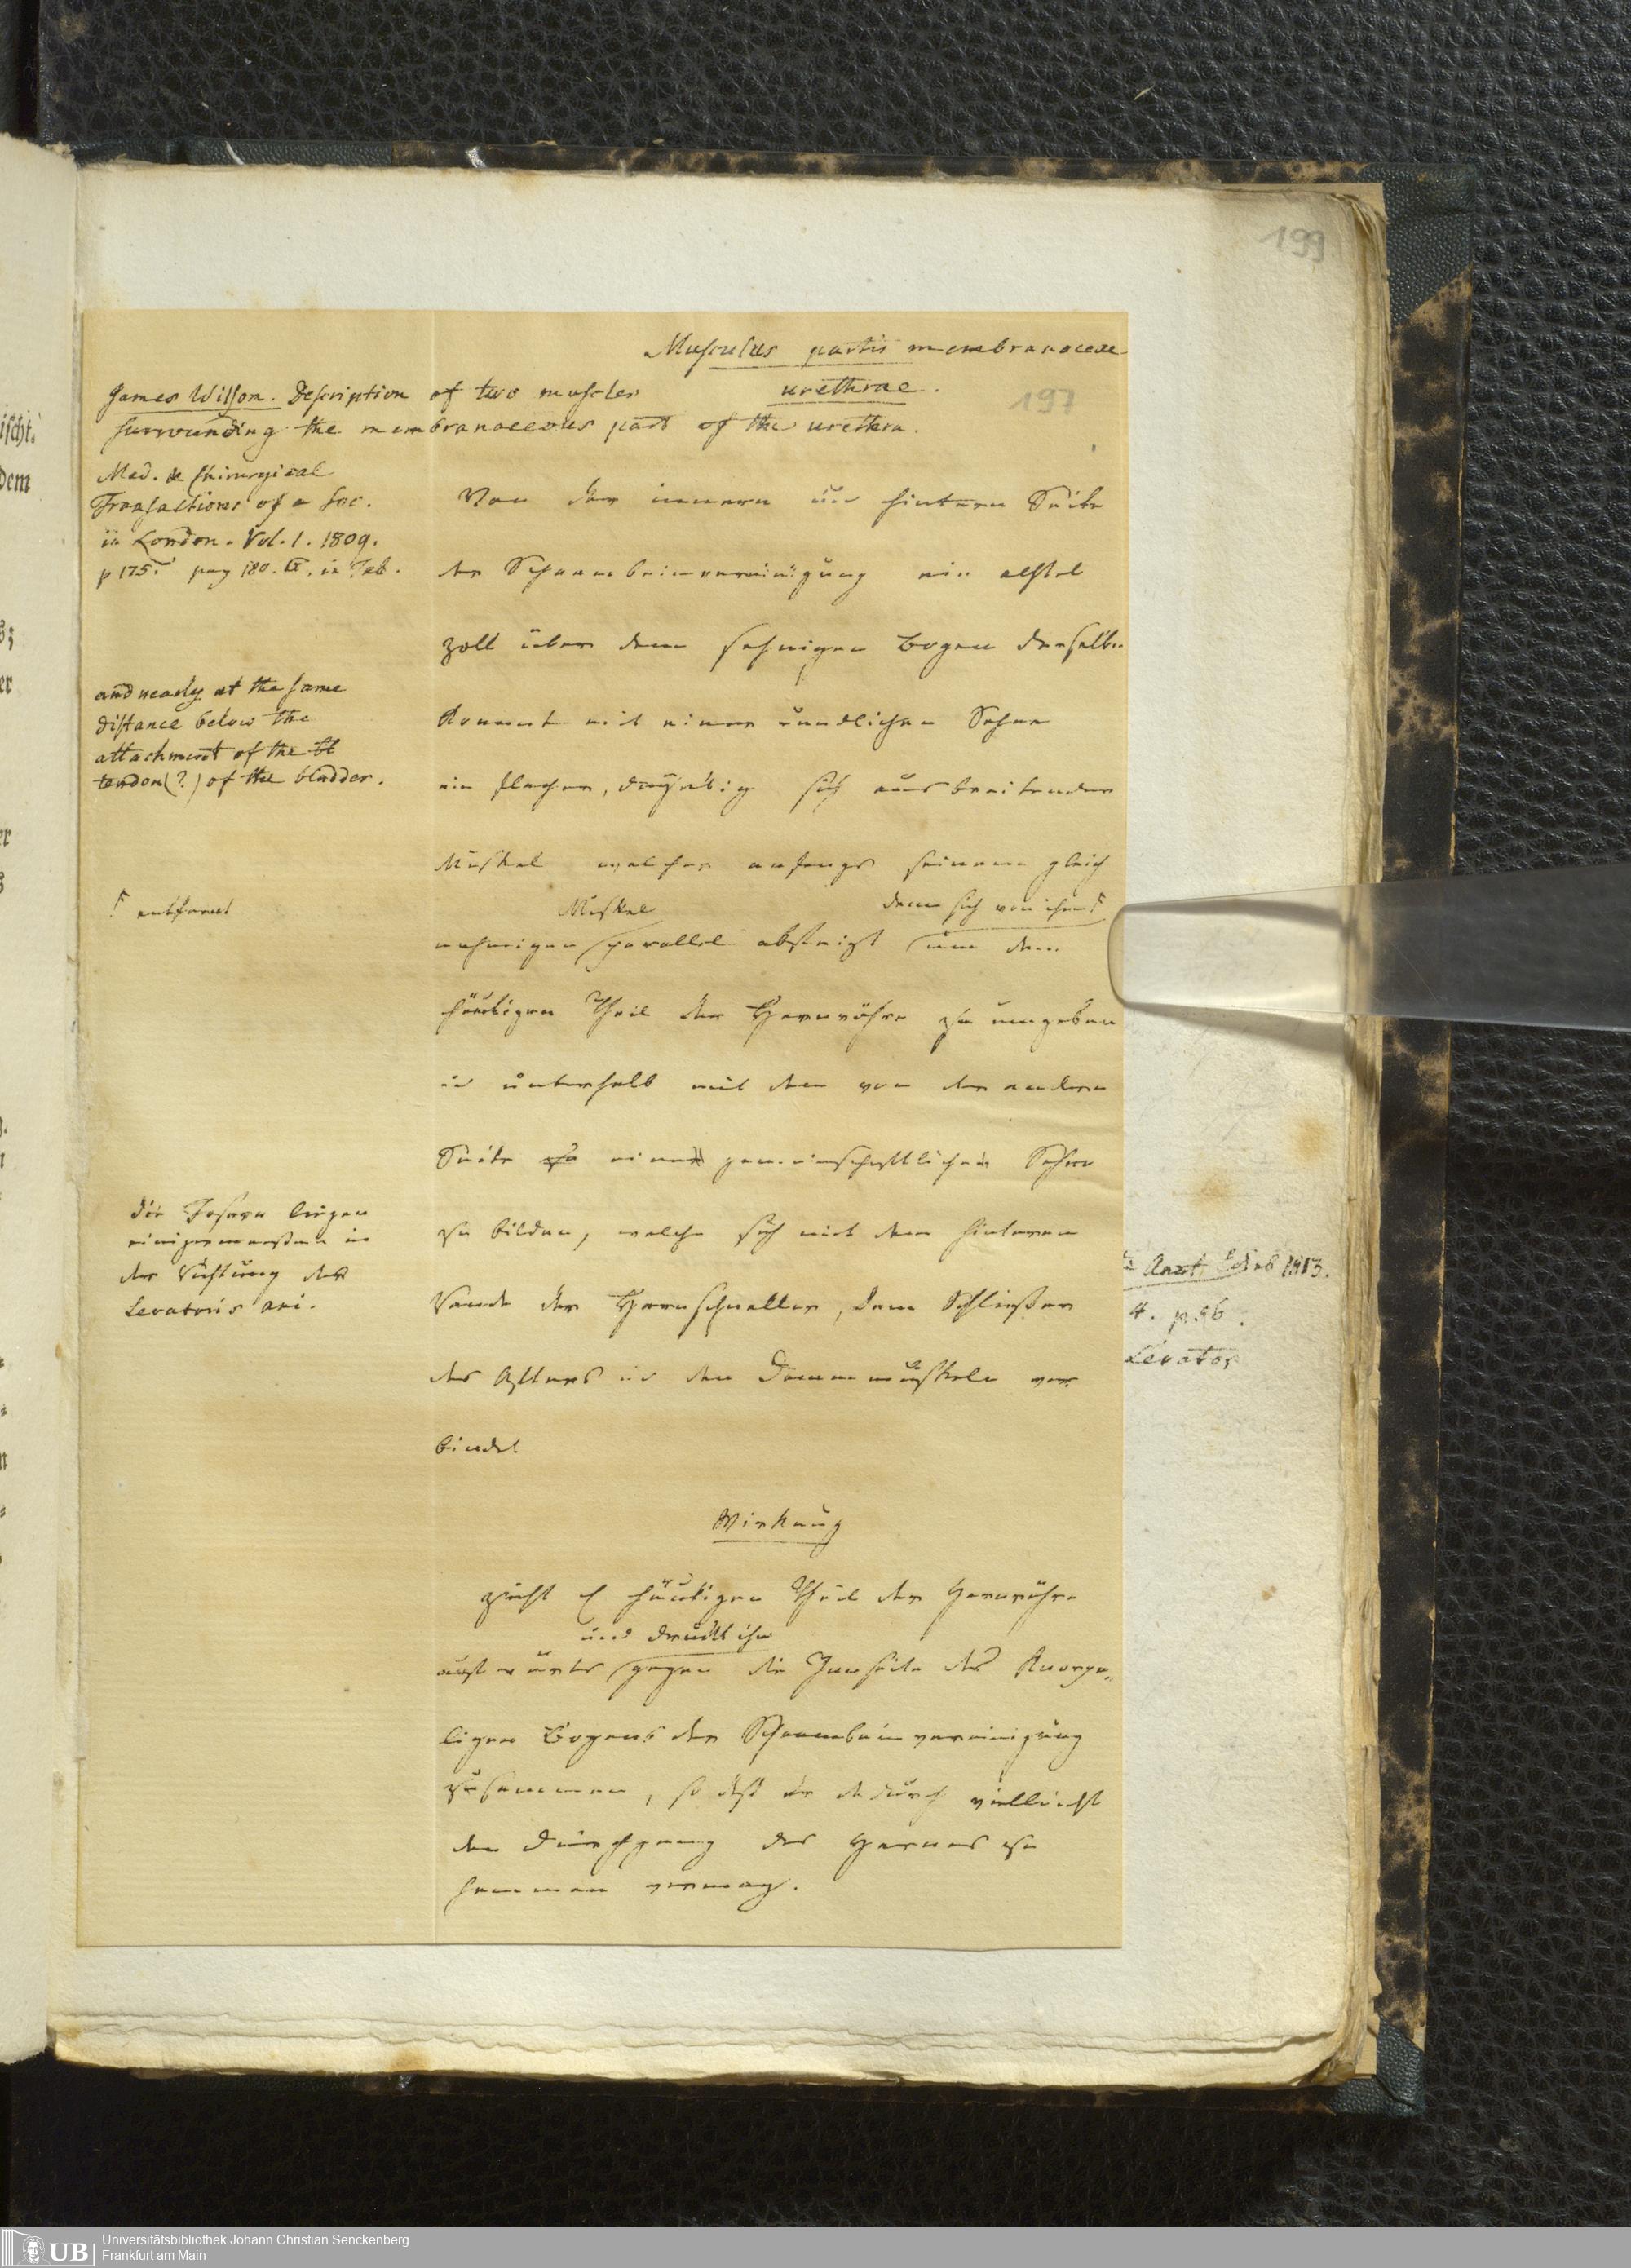 199
Musculus partis membranaceae
urethrae.
197
James Wilson. Description of two muscles
surrounding the membranaceous part of the urethra.
Med. & Chirurgical
Transactions of a Soc.
in London. Vol. 1. 1809.
p 175. pag 180. in Tab.
Von der innern und hintern Seite
der Schaambeinvereinigung ein achtel
Zoll über dem sehnigen Bogen derselben
and nearly at the same
distance below the
attachment of the
tendon (?) of the bladder.
kommt mit einer rundlichen Sehne
ein flacher, sich ausbreitender
Muskel welcher anfangs seinem gleich
Γ entfernt
Muskel
dann sich von ihm Γ
nahmigen parallel absteigt um den
häutigen Theil der Harnröhre zu umgeben
u unterhalb mit dem von der andern
Seite zu eine gemeinschaftlichen Sehne
die Fasern liegen
einigermaaßen in
der Richtung des
Levatoris ani.
zu bilden, welche sich mit dem hinteren
Rande der Harnschneller, dem Schließer
des Afters u den Dammmuskeln ver
bindet
Anat. Edinb 1813.
4. p. 96.
Levator
Wirkung
zieht häutigen Theil der Harnröhre
und drückt ihn
aufwärts gegen die Innseite des Knorpe„
ligen Bogens der Schaambeinvereinigung
zusammen, so daß er dadurch vielleicht
den Durchgang des Harnes zu
hemmen vermag.
ischt.
dem
s;
er
UB
Universitätsbibliothek Johann Christian Senckenberg
Frankfurt am Main